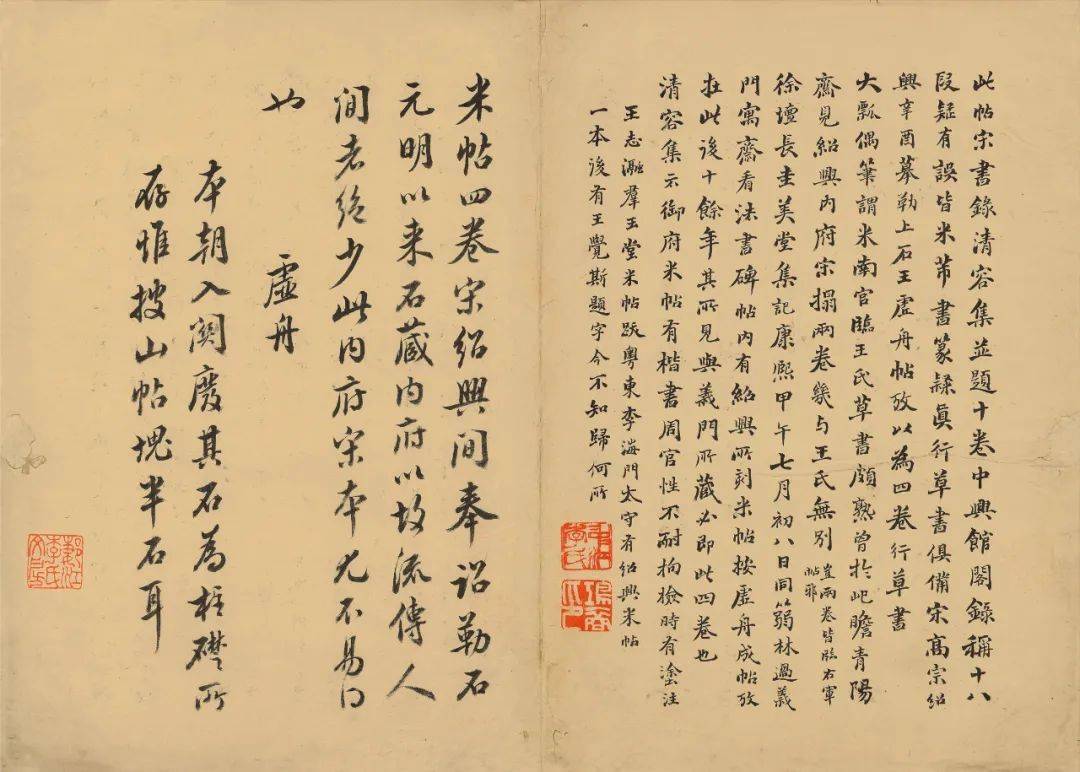 此帖宋書錄清容集並題十卷中興館閣錄稱十八
段疑有誤皆米芾書篆隸真行草書俱備宋高宗紹
興辛酉摹勒上石王虛舟帖攷以為四卷行草書
大瓢偶筆謂米南宮臨王氏草書頗熟曾於屺瞻青陽
齋見紹興內府宋搨兩卷幾与王氏無別豈兩卷皆臨右軍
帖耶
徐壇長圭美堂集記康熙甲午七月初八日同篛林過義
門寓齋看法書碑帖內有紹興所刻米帖按虛舟成帖攷
在此後十餘年其所見與義門所藏必即此四卷也
清容集示御府米帖有楷書周官性不耐拘檢時有塗注
王志瀜羣玉堂米帖跋粵東李海門太守有紹興米帖
一本後有王覺斯題字今不知歸何所
米帖四卷宋紹興間奉詔勒石
元明以来石藏內府以故流傳人
間者絕少此內府宋本尤不易得
也
虛舟
本朝入關廢其石為柱礎所
存惟搜山帖塊半石耳